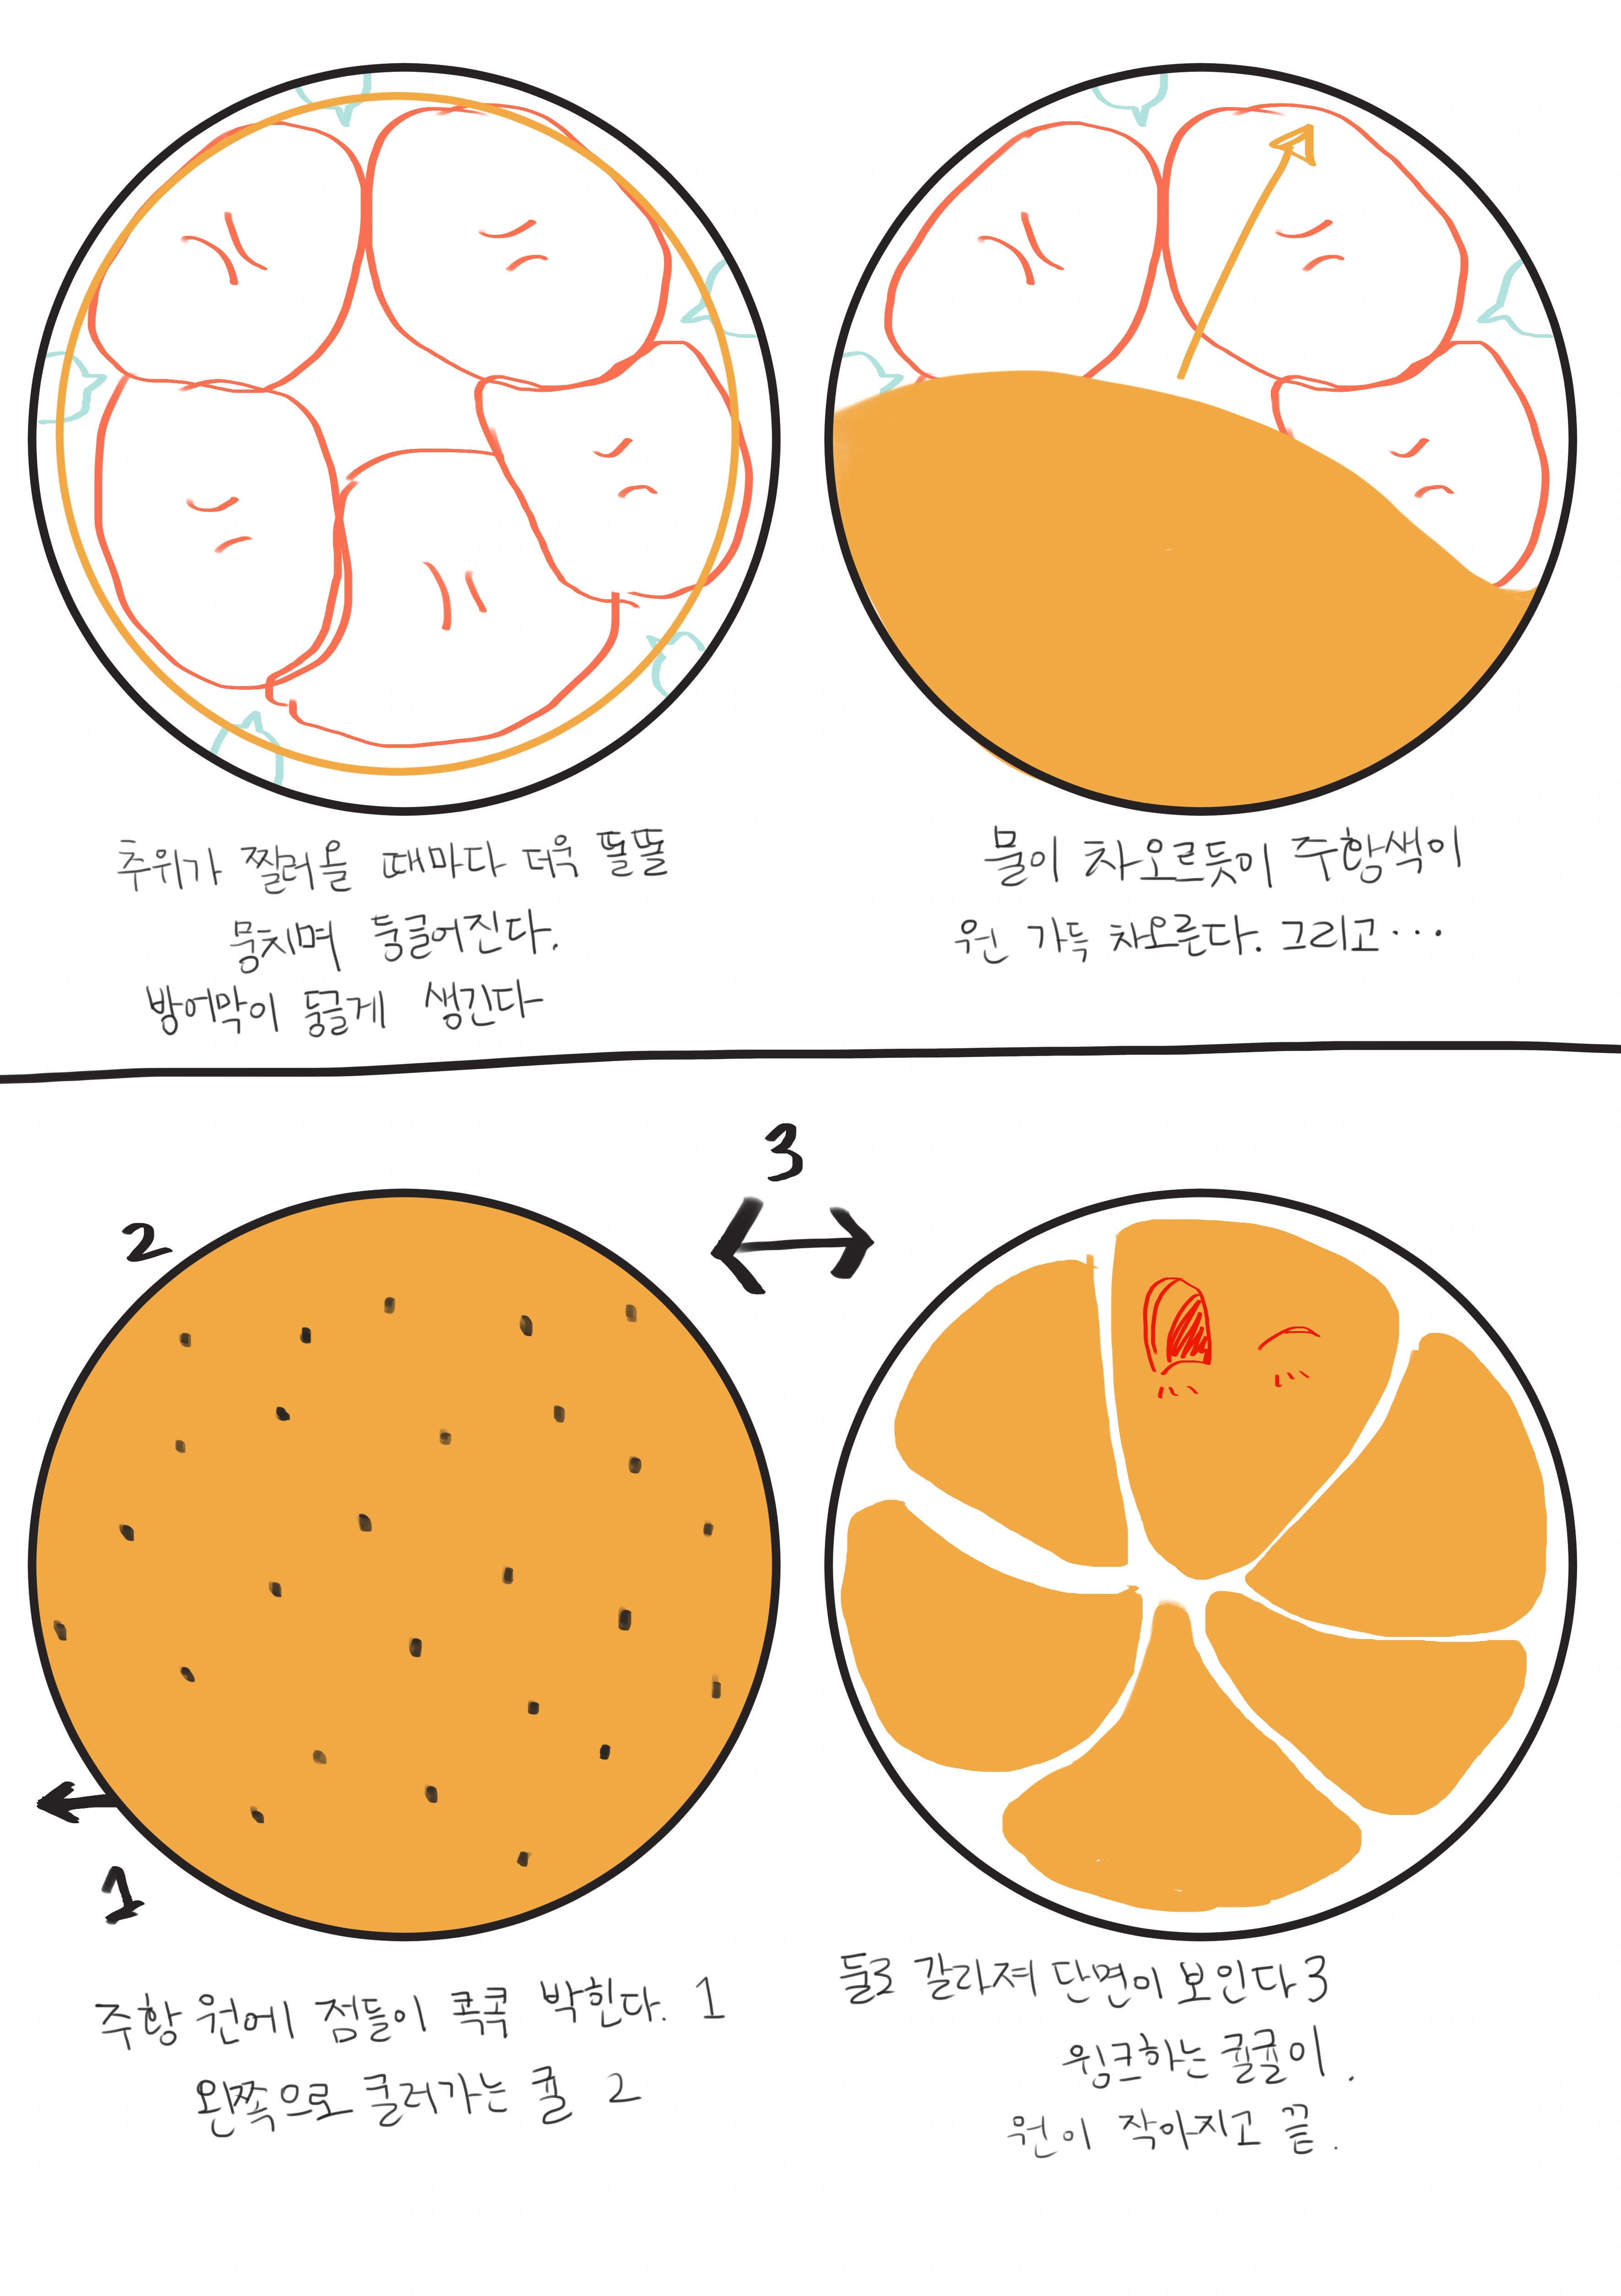 추위가 찔러올 때마다 더욱 똘똘
뭉치며 둥글어진다.
방어막이 둥글게 생긴다
물이 차오르듯이 주황색이
원 가득 차오른다. 그리고...
3
2
1
주황 원에 점들이 콕콕 박힌다. 1
왼쪽으로 굴러가는 귤 2
둘로 갈라져 단면이 보인다 3
윙크하는 귤귤이.
원이 작아지고 끝.